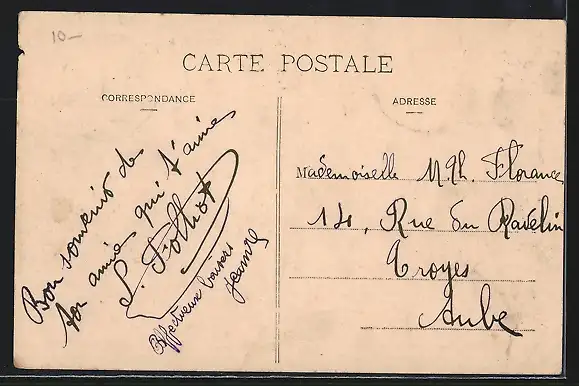 10-
CARTE POSTALE
CORRESPONDANCE
ADRESSE
Bon souvenir de
ton amie qui t'aime
Affectueux baisers
Jeanne
Mademoiselle Mgh. Florance
14, Rue du Ravelin
Troyes
Aube